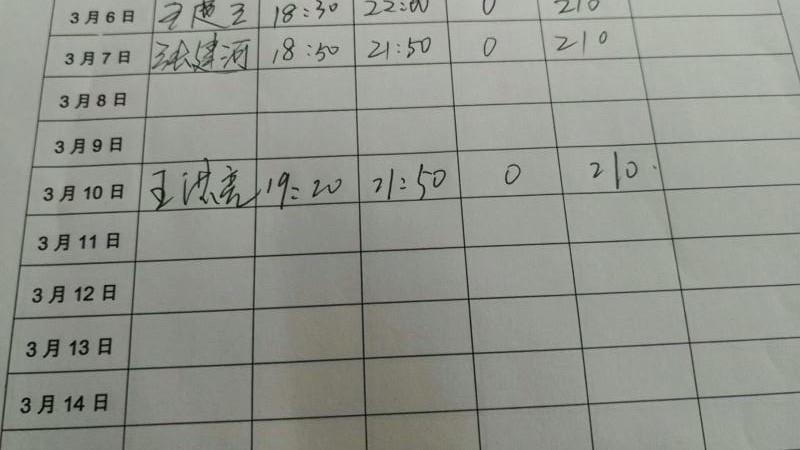 3月6日 18:30 22:00 0 210
3月7日 张建河 18:50 21:50 0 210
3月8日
3月9日
3月10日 王洪亮 19:20 21:50 0 210.
3月11日
3月12日
3月13日
3月14日